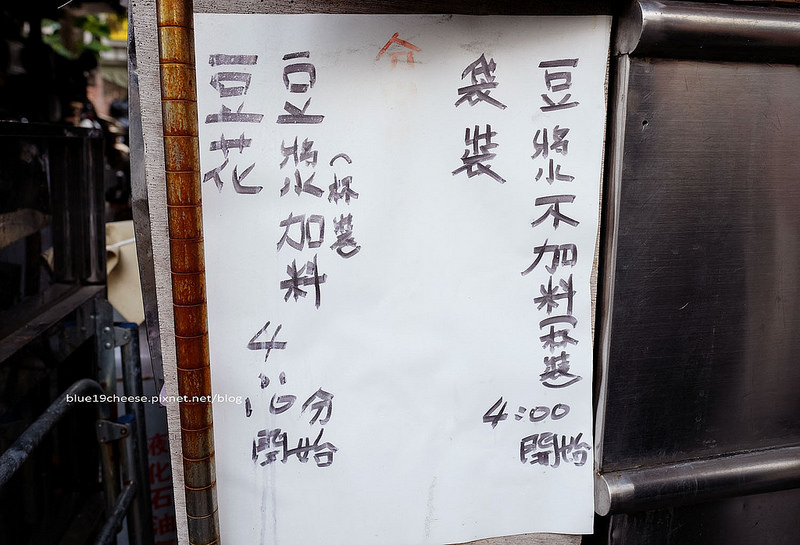 豆漿不加料(杯裝)
袋裝
4:00
開始
豆漿加料
(杯裝)
豆花
4
分
開始
blue19cheese.pixnet.net/blog
化石油